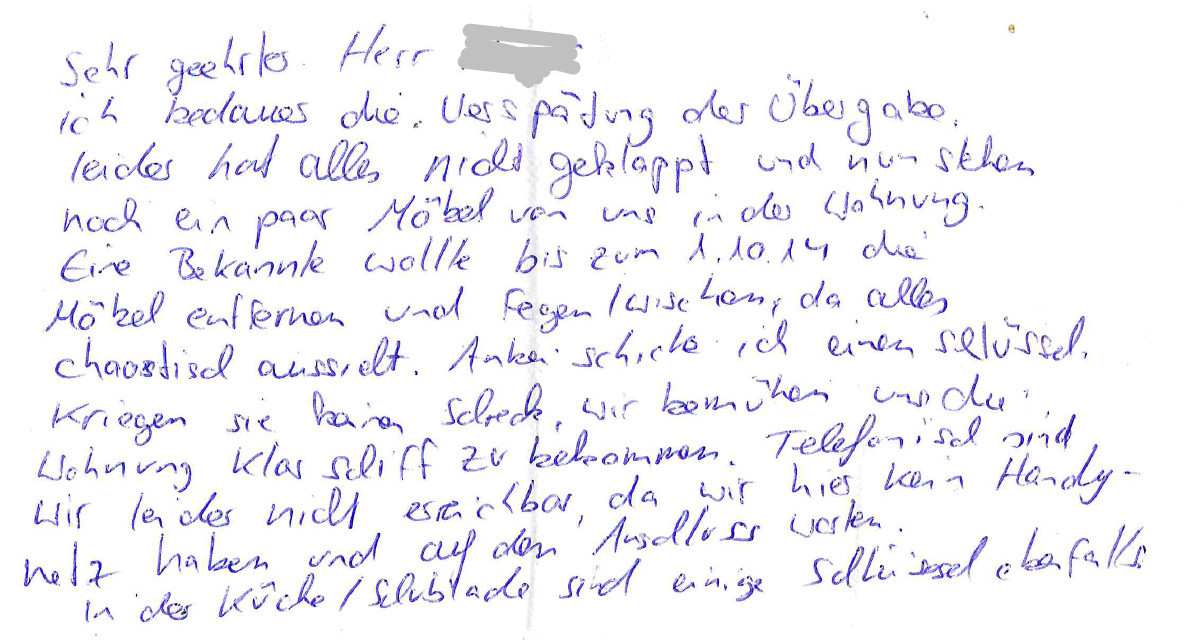 Sehr geehrter Herr
ich bedauer die Verspätung der Übergabe.
leider hat alles nicht geklappt und nun stehen
noch ein paar Möbel von uns in der Wohnung.
Eine Bekannte wollte bis zum 1.10.14 die
Möbel entfernen und Fegen/wischen, da alles
chaostisch aussieht. Anbei schicke ich einen Schlüssel.
Kriegen sie keinen Schreck, wir bemühen uns die
Wohnung Klar schiff zu bekommen. Telefonisch sind
wir leider nicht erreichbar, da wir hier kein Handy-
netz haben und auf den Anschluss warten.
in der Küche/Schublade sind einige Schlüssel ebenfalls